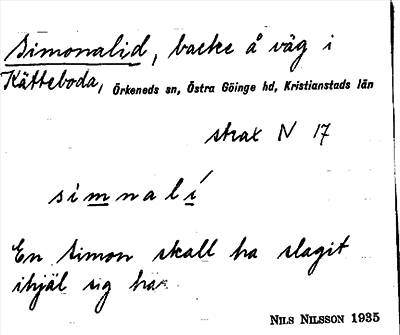 Simonalid, backe å väg i
Kätteboda, Örkeneds sn, Östra Göinge hd, Kristianstads län
strax N 17
simnalí
En Simon skall ha slagit
ihjäl sig här
NILS NILSSON 1935